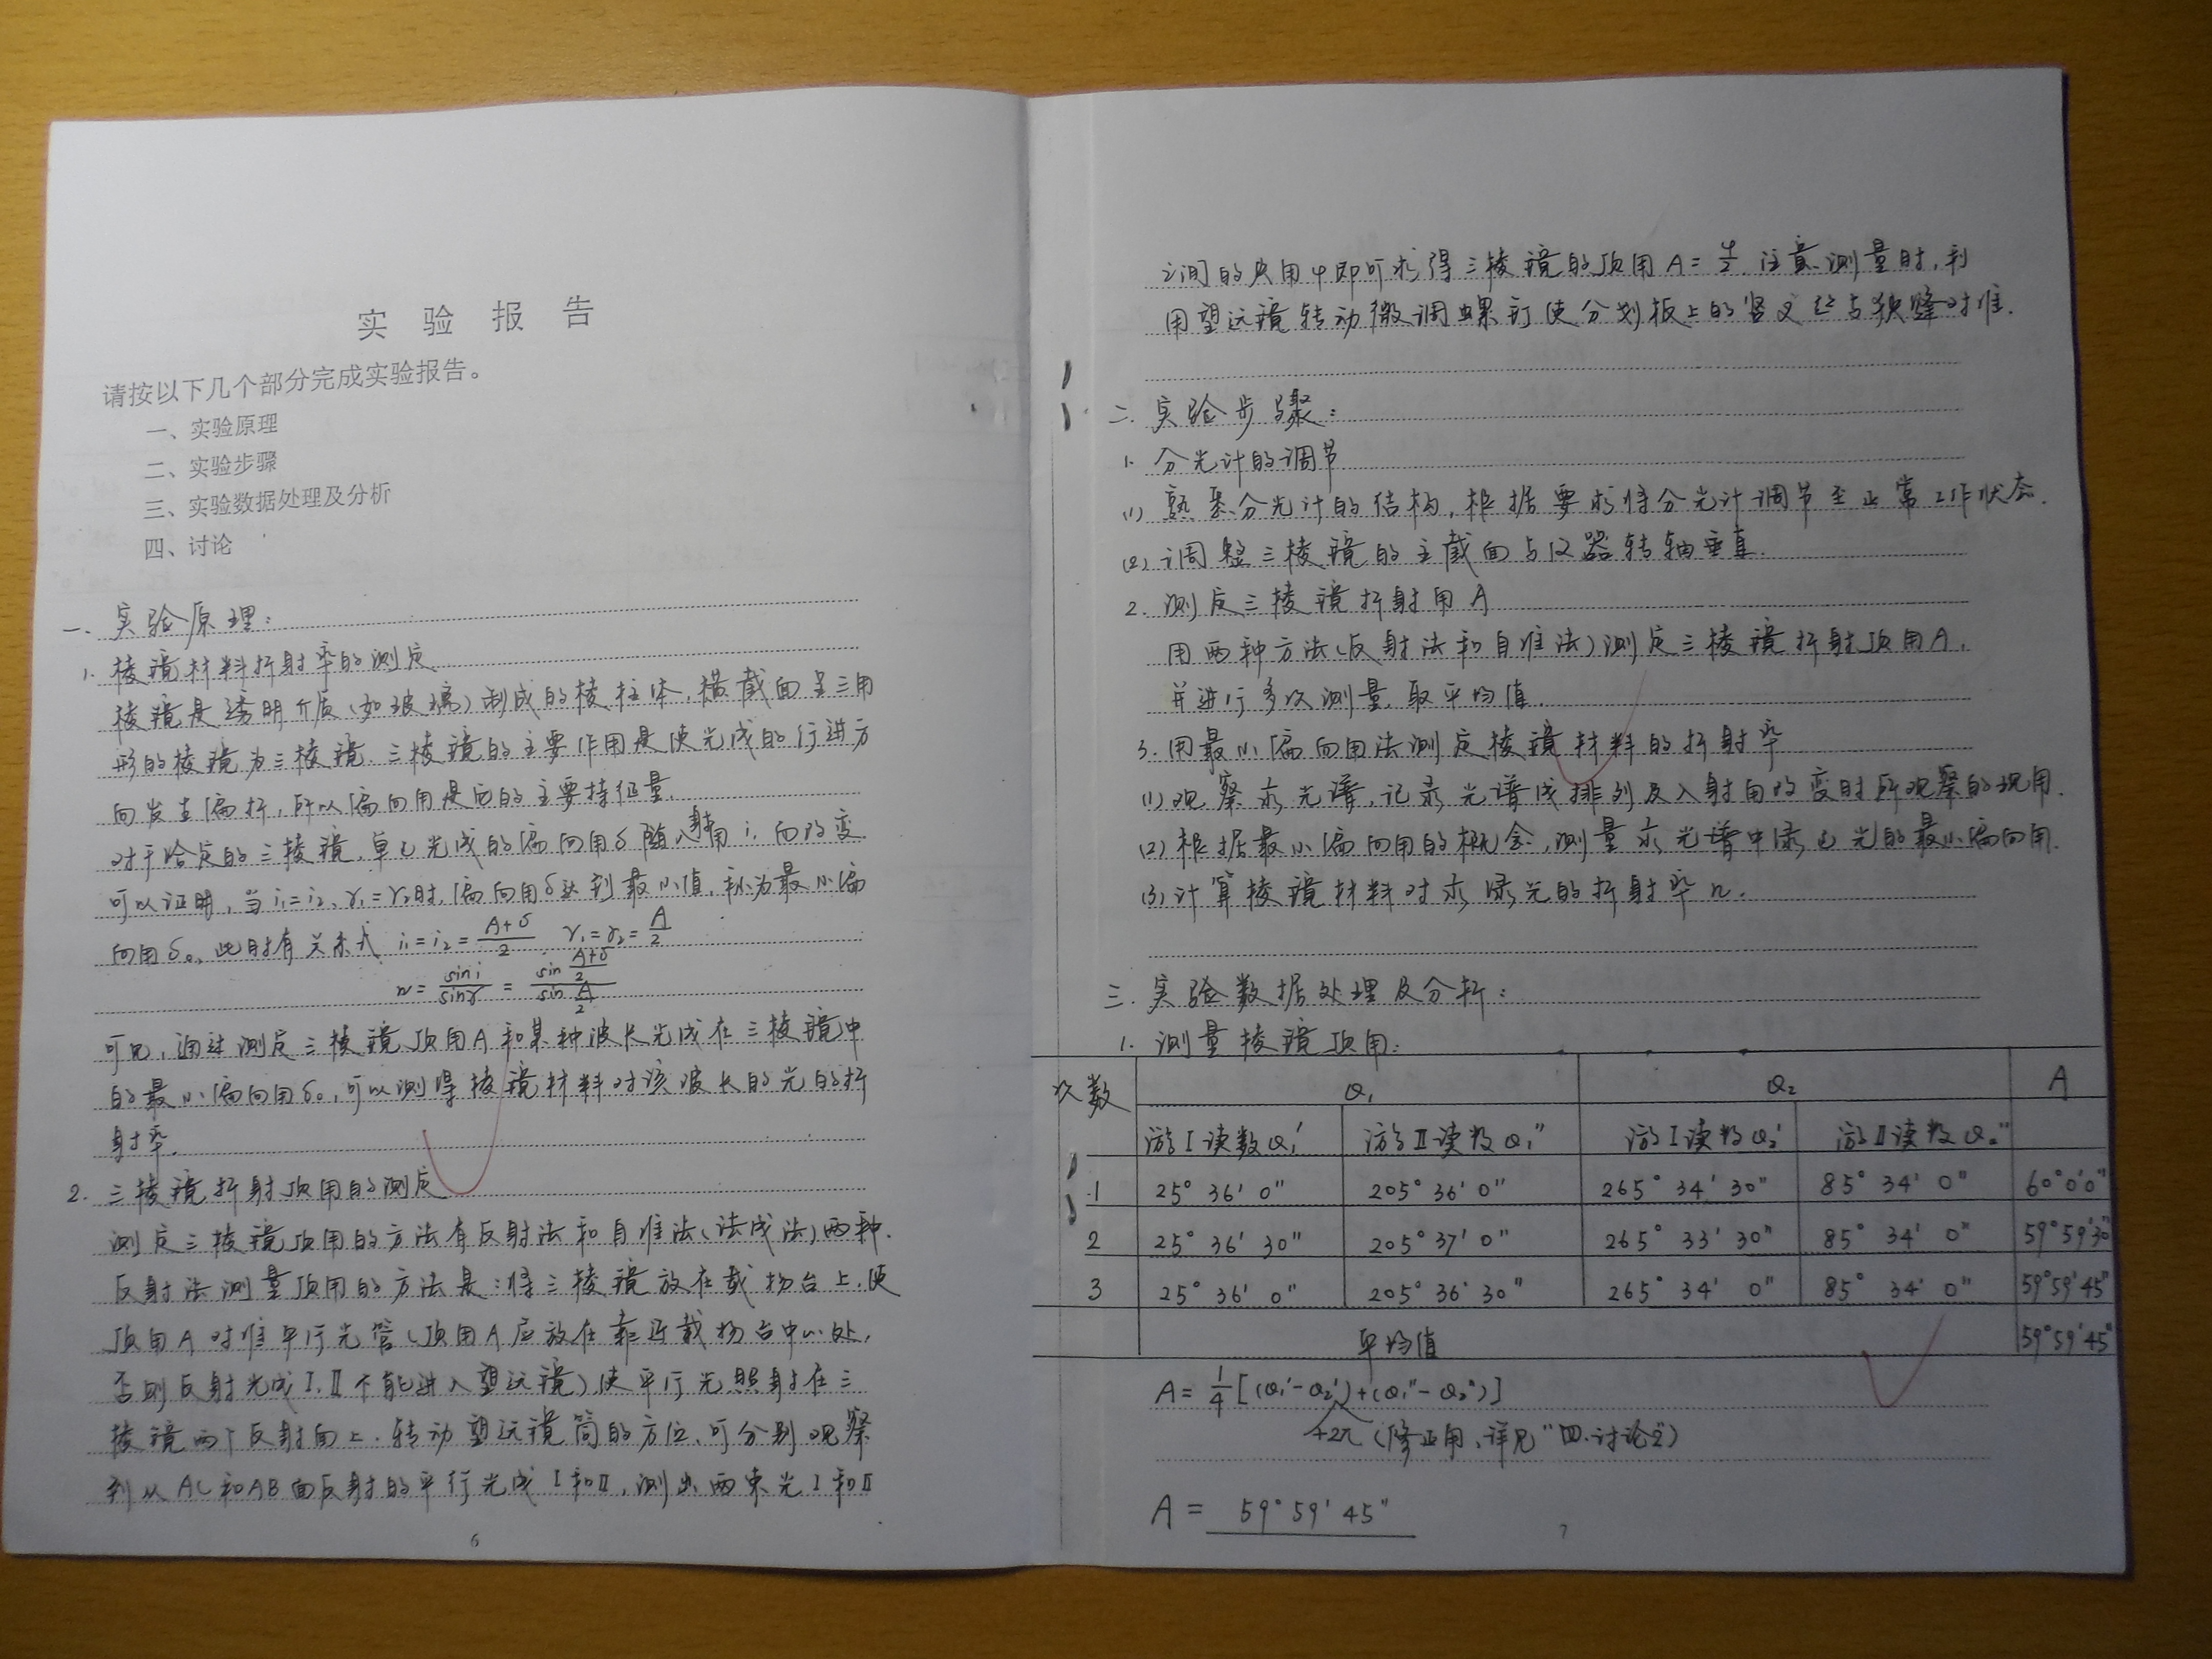 实验报告
请按以下几个部分完成实验报告。
一、实验原理
二、实验步骤
三、实验数据处理及分析
四、讨论
一. 实验原理:
1. 棱镜材料折射率的测定
棱镜是透明介质(如玻璃)制成的棱柱体,横截面呈三角
形的棱镜为三棱镜.三棱镜的主要作用是使光线的行进方
向发生偏折,所以偏向角是它的主要特征量.
对于给定的三棱镜,单色光线的偏向角δ随入射角i₁而改变.
可以证明,当i₁=i₂、γ₁=γ₂时,偏向角δ达到最小值,称为最小偏
向角δ₀,此时有关系式 i₁=i₂=(A+δ)/2 γ₁=γ₂=A/2
n = sin i/sin γ = sin((A+δ)/2)/sin(A/2)
可见,通过测定三棱镜顶角A和某种波长光线在三棱镜中
的最小偏向角δ₀,可以测得棱镜材料对该波长的光的折
射率.
2. 三棱镜折射顶角的测定
测定三棱镜顶角的方法有反射法和自准法(法线法)两种.
反射法测量顶角的方法是:将三棱镜放在载物台上,使
顶角A对准平行光管(顶角A应放在靠近载物台中心处,
否则反射光线I、II不能进入望远镜)使平行光照射在三
棱镜两个反射面上.转动望远镜筒的方位,可分别观察
到从AC和AB面反射的平行光线I和II,测出两束光I和II
6
之间的夹角φ即可求得三棱镜的顶角A=φ/2.注意测量时,利
用望远镜转动微调螺钉使分划板上的竖叉丝与狭缝对准.
二. 实验步骤:
1. 分光计的调节
(1) 熟悉分光计的结构,根据要求将分光计调节至正常工作状态.
(2) 调整三棱镜的主截面与仪器转轴垂直.
2. 测定三棱镜折射角A
用两种方法(反射法和自准法)测定三棱镜折射顶角A,
并进行多次测量,取平均值.
3. 用最小偏向角法测定棱镜材料的折射率
(1) 观察汞光谱,记录光谱线排列及入射角改变时所观察的现角.
(2) 根据最小偏向角的概念,测量汞光谱中绿色光的最小偏向角.
(3) 计算棱镜材料对汞绿光的折射率n.
三. 实验数据处理及分析:
1. 测量棱镜顶角:
次数 θ₁ θ₂ A
游标I读数θ₁′ 游标II读数θ₁″ 游标I读数θ₂′ 游标II读数θ₂″
1 25°36′0″ 205°36′0″ 265°34′30″ 85°34′0″ 60°0′0″
2 25°36′30″ 205°37′0″ 265°33′30″ 85°34′0″ 59°59′30″
3 25°36′0″ 205°36′30″ 265°34′0″ 85°34′0″ 59°59′45″
平均值 59°59′45″
A = 1/4[(θ₁′-θ₂′)+(θ₁″-θ₂″)]
+2π(修正用,详见"四.讨论2")
A = 59°59′45″
7